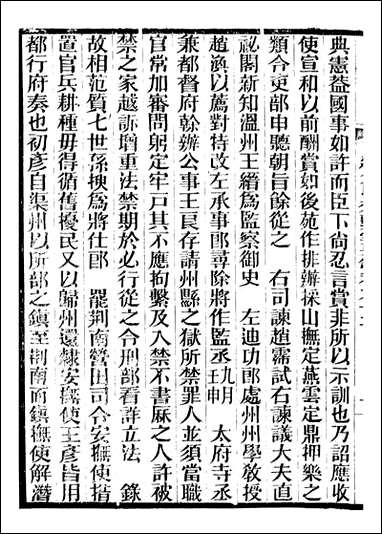 典憲蓋國事如許而臣下尚忍言賞非所以示訓也乃詔應收
使宣和以前酬賞如後苑作排辦採山撫定燕雲定鼎押樂之
類令吏部申聽朝旨餘從之 右司諫趙霈試右諫議大夫直
祕閣新知溫州王縉為監察御史 左迪功郎處州州學敎授
趙渙以薦對特改左承事郎尋除將作監丞九月壬申 太府寺丞
兼都督府幹辦公事王良存請州縣之獄所禁罪人並須當職
官常加審問躬定牢戸其不應拘繫及入禁不書厤之人許被
禁之家越訴增重法禁期於必行從之仍令刑部看詳立法 錄
故相范質七世孫㬇為將仕郎 罷荆南營田司令安撫使措
置官兵耕種毋得循舊擾民又以歸州還隸安撫使王彥皆用
都行府奏也初彥自渠州以所部之鎮至荆南而鎮撫使解潛